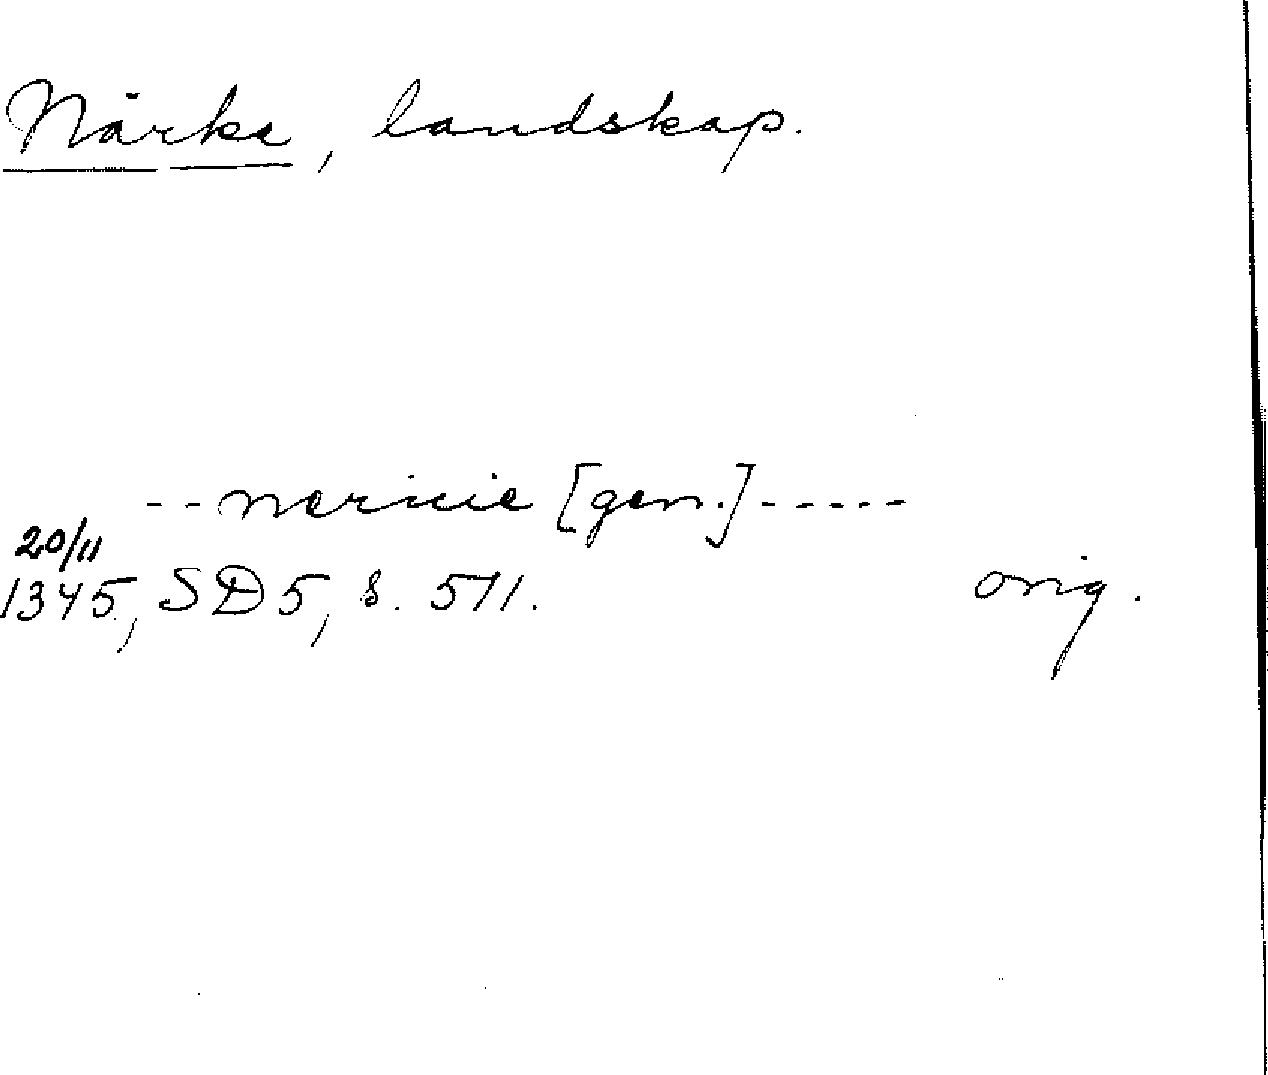 Närke, landskap.
--nericie [gen.]-----
20/11
1345, SD5, s. 511. orig.